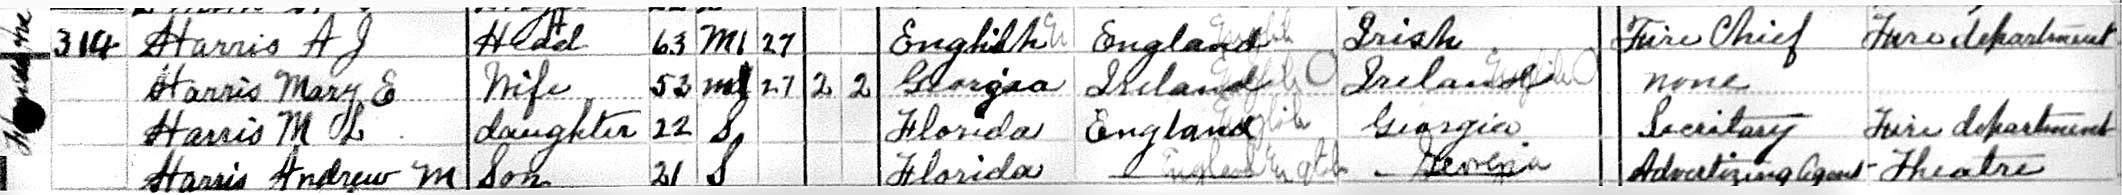 314 Harris A J Head 63 M1 27 English England Irish Fire Chief Fire department
Harris Mary E Wife 53 M1 27 2 2 Georgia Ireland Ireland none
Harris M L daughter 22 S Florida England Georgia Secritary Fire department
Harris Andrew M Son 21 S Florida England English Georgia Advertizing Agent Theatre